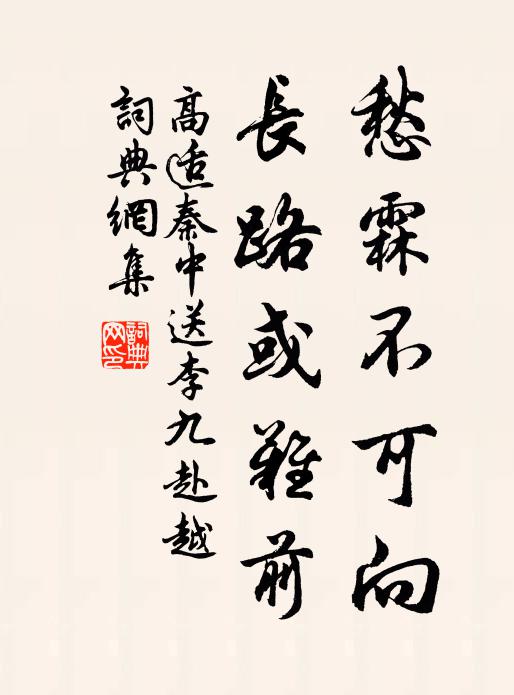 愁霖不可向
長路或難前
高适秦中送李九赴越
詞典網集
詞典網印